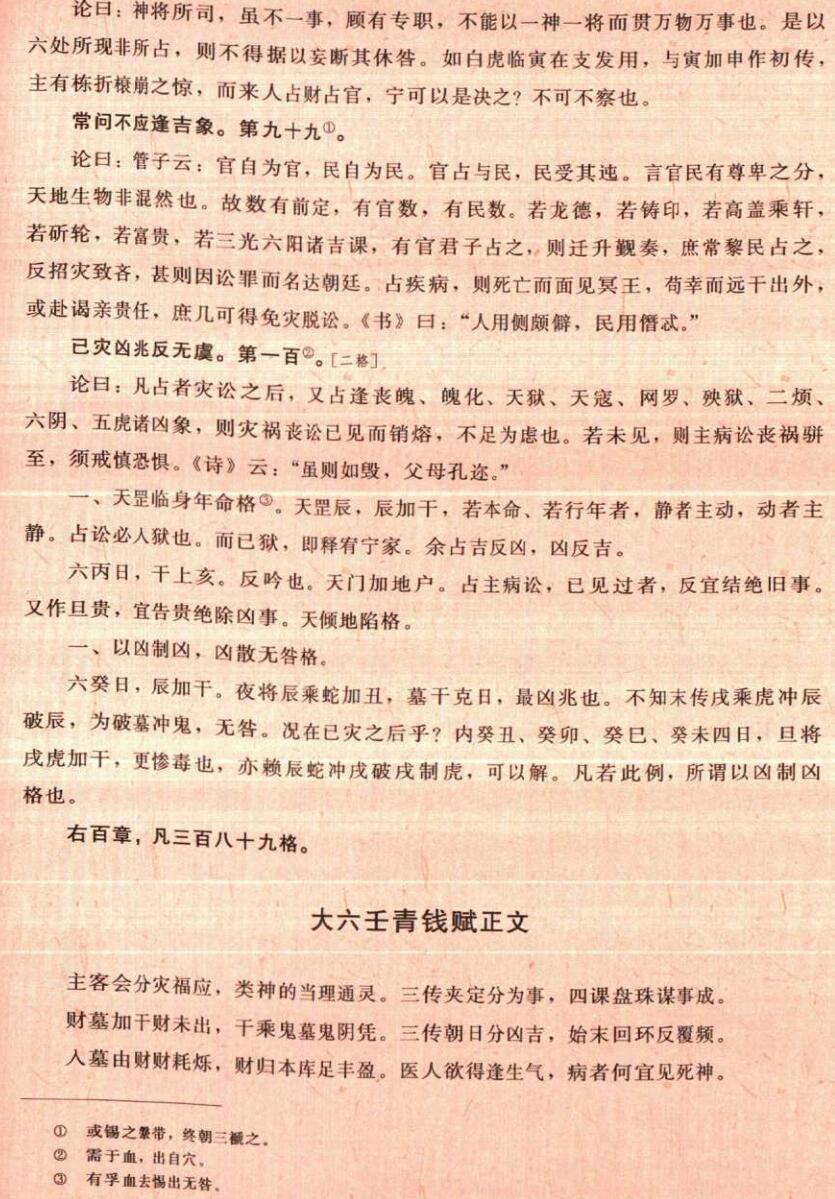 论曰：神将所司，虽不一事，顾有专职，不能以一神一将而贯万物万事也。是以
六处所现非所占，则不得据以妄断其休咎。如白虎临寅在支发用，与寅加申作初传，
主有栋折榱崩之惊，而来人占财占官，宁可以是决之？不可不察也。
常问不应逢吉象。第九十九①。
论曰：管子云：官自为官，民自为民。官占与民，民受其迍。言官民有尊卑之分，
天地生物非混然也。故数有前定，有官数，有民数。若龙德，若铸印，若高盖乘轩，
若斫轮，若富贵，若三光六阳诸吉课，有官君子占之，则迁升觐奏，庶常黎民占之，
反招灾致吝，甚则因讼罪而名达朝廷。占疾病，则死亡而面见冥王，苟幸而远干出外，
或赴谒亲贵任，庶几可得免灾脱讼。《书》曰：“人用侧颇僻，民用僭忒。”
已灾凶兆反无虞。第一百②。[二格]
论曰：凡占者灾讼之后，又占逢丧魄、魄化、天狱、天寇、网罗、殃狱、二烦、
六阴、五虎诸凶象，则灾祸丧讼已见而销熔，不足为虑也。若未见，则主病讼丧祸骈
至，须戒慎恐惧。《诗》云：“虽则如毁，父母孔迩。”
一、天罡临身年命格③。天罡辰，辰加干，若本命、若行年者，静者主动，动者主
静。占讼必入狱也。而已狱，即释宥宁家。余占吉反凶，凶反吉。
六丙日，干上亥。反吟也。天门加地户。占主病讼，已见过者，反宜结绝旧事。
又作旦贵，宜告贵绝除凶事。天倾地陷格。
一、以凶制凶，凶散无咎格。
六癸日，辰加干。夜将辰乘蛇加丑，墓干克日，最凶兆也。不知末传戌乘虎冲辰
破辰，为破墓冲鬼，无咎。况在已灾之后乎？内癸丑、癸卯、癸巳、癸未四日，旦将
戌虎加干，更惨毒也，亦赖辰蛇冲戌破戌制虎，可以解。凡若此例，所谓以凶制凶
格也。
右百章，凡三百八十九格。
大六壬青钱赋正文
主客会分灾福应，类神的当理通灵。三传夹定分为事，四课盘珠谋事成。
财墓加干财未出，干乘鬼墓鬼阴凭。三传朝日分凶吉，始末回环反覆频。
入墓由财财耗烁，财归本库足丰盈。医人欲得逢生气，病者何宜见死神。
① 或锡之鞶带，终朝三褫之。
② 需于血，出自穴。
③ 有孚血去惕出无咎。